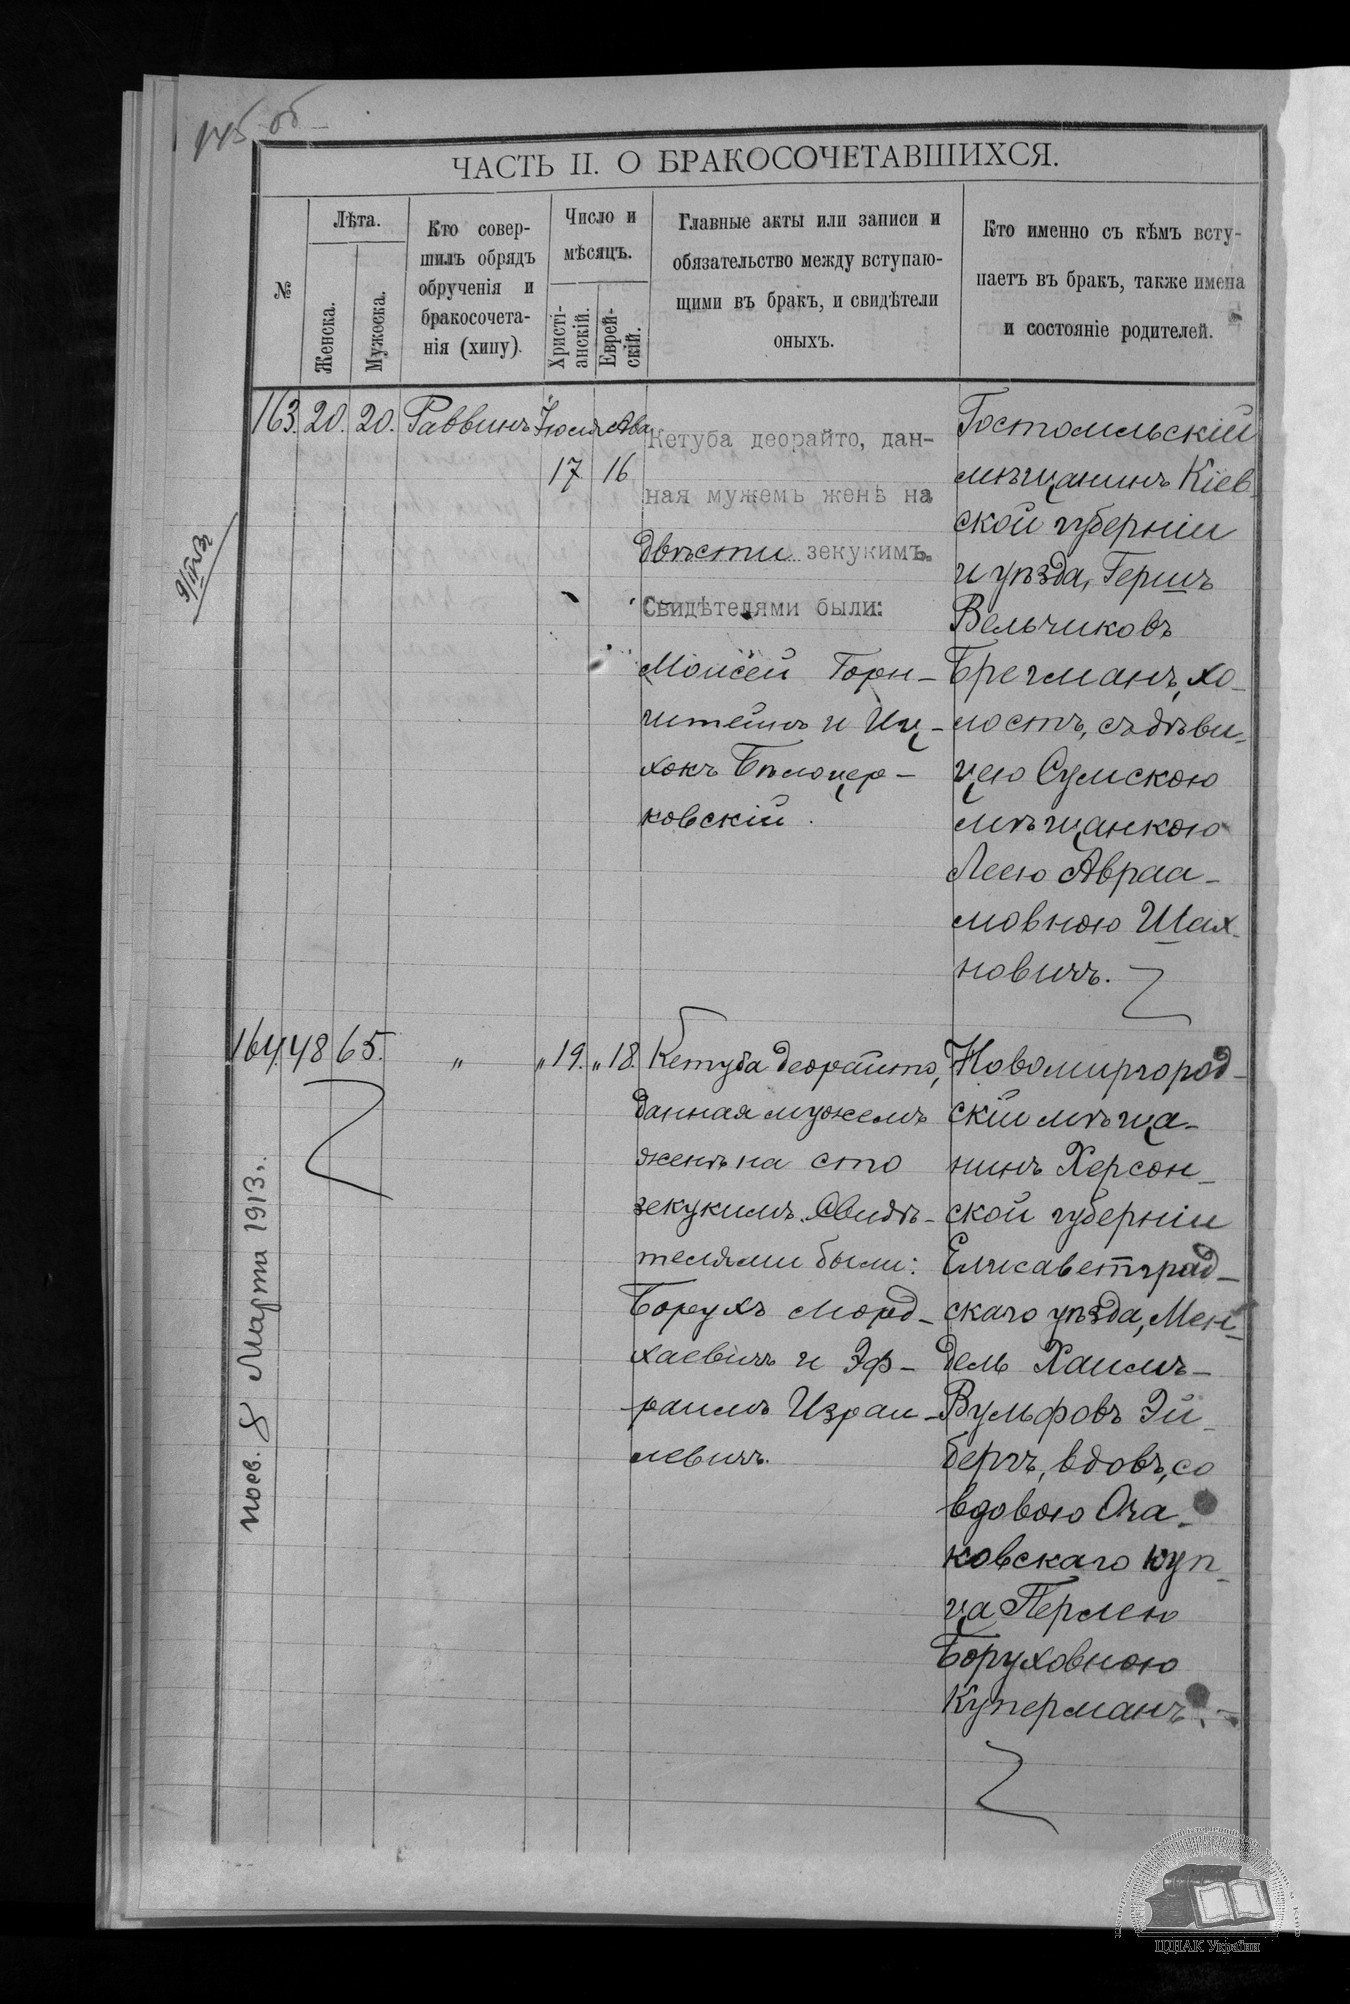 145 об
ЧАСТЬ II. О БРАКОСОЧЕТАВШИХСЯ.
№
Лѣта.
Женска.
Мужеска.
Кто совер-
шилъ обрядъ
обрученія и
бракосочета-
нія (хипу).
Число и
мѣсяцъ.
Христі-
анскій.
Еврей-
скій.
Главные акты или записи и
обязательство между вступаю-
щими въ бракъ, и свидѣтели
оныхъ.
Кто именно съ кѣмъ всту-
паетъ въ бракъ, также имена
и состояніе родителей.
163. 20. 20. Раввинъ Іюля Ава
17 16
Кетуба деорайто, дан-
ная мужемъ женѣ на
двѣсти зекукимъ.
Свидѣтелями были:
Моисей Горн-
штейнъ и Иц-
хокъ Бѣлоцер-
ковскій.
Гостомльскій
мѣщанинъ Кіев-
ской губерніи
и уѣзда, Гершъ
Вельчиковъ
Брегманъ, хо-
лостъ, съ дѣви-
цею Сумскою
мѣщанкою
Леею Авраа-
мовною Шах-
новичъ.
164. 48 65. „ „ 19. „ 18.
Кетуба деорайто,
данная мужемъ
женѣ на сто
зекукимъ. Свидѣ-
телями были:
Борухъ Морд-
хаевичъ и Эф-
раимъ Израи-
левичъ.
Новомиргород-
скій мѣща-
нинъ Херсон-
ской губерніи
Елисаветград-
скаго уѣзда, Мен-
дель Хаимъ-
Вульфовъ Эй-
бергъ, вдовъ, со
вдовою Оча-
ковскаго куп-
ца Перлею
Боруховною
Куперманъ.
8 Марта 1913 г.
ЦДІАК України